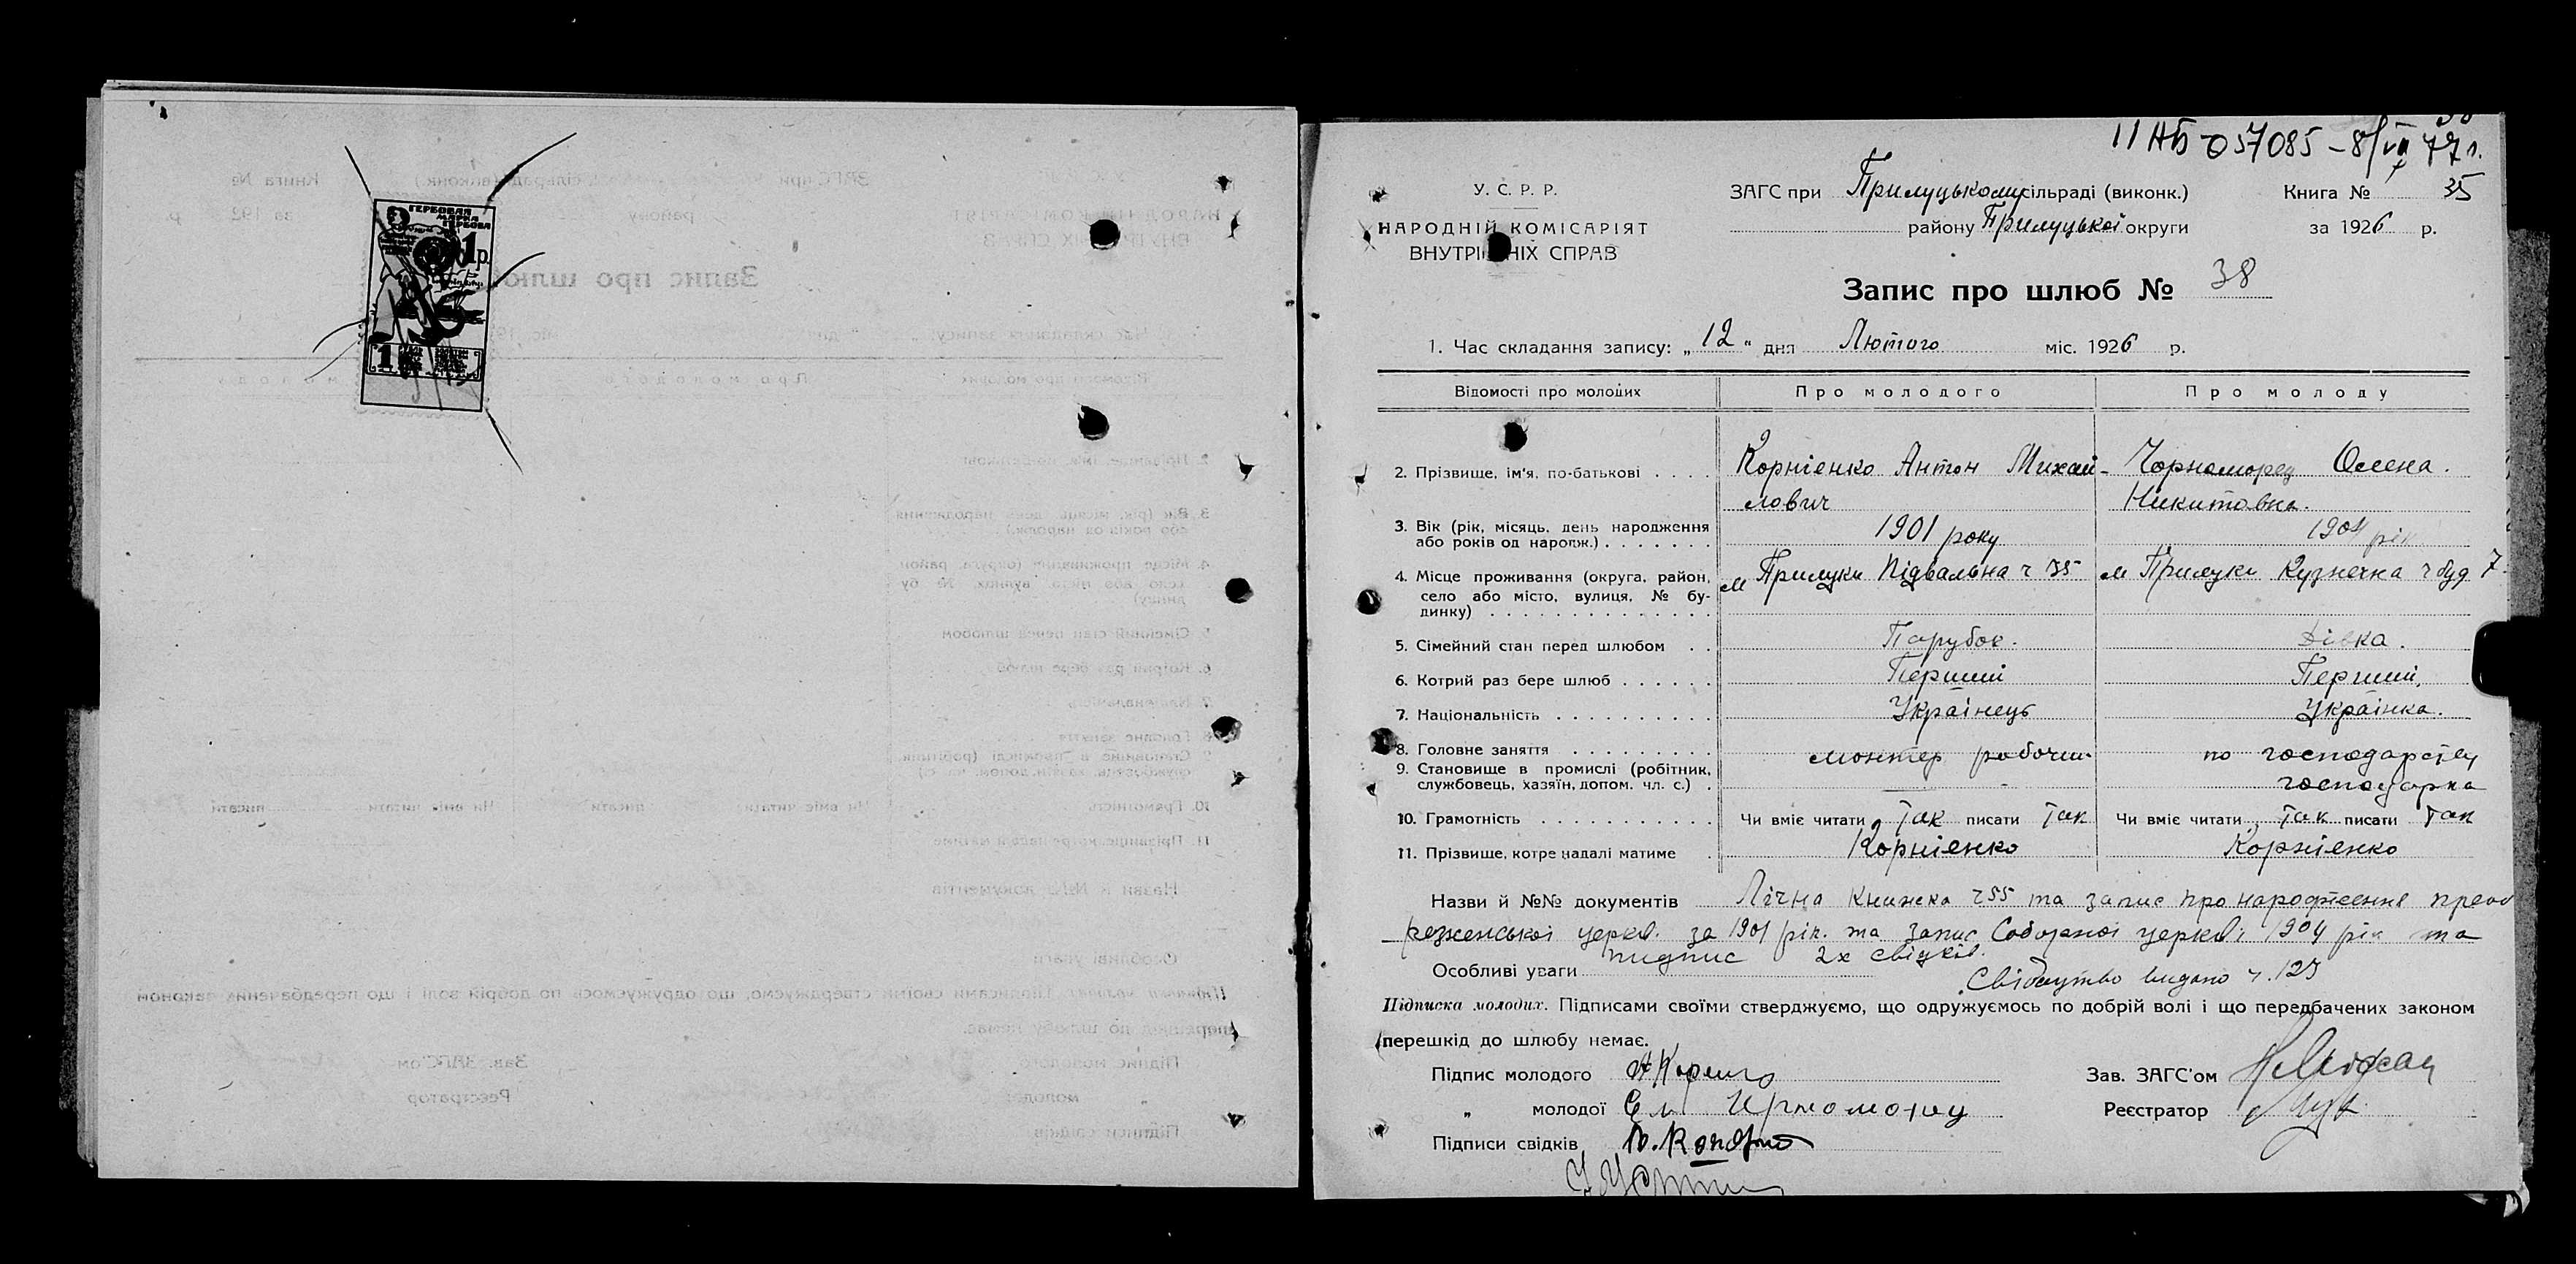 ГЕРБОВАЯ
МАРКА
ГЕРБОВА
1р.
1
11 НБ 057085 – 8/VII 77 г.
У. С. Р. Р.
НАРОДНІЙ КОМІСАРІЯТ
ВНУТРІШНІХ СПРАВ
ЗАГС при Прилуцькому сільраді (виконк.)
району Прилуцької округи
Книга № 35
за 1926 р.
Запис про шлюб № 38
1. Час складання запису: „12“ дня Лютого міс. 1926 р.
Відомості про молодих Про молодого Про молоду
2. Прізвище, ім'я, по-батькові . . . . Корнієнко Антон Михай- Чорноморец Олена.
лович Никитовна.
3. Вік (рік, місяць, день народження
або років од народж.) . . . . . . . 1901 року 1904 рік
4. Місце проживання (округа, район, м Прилуки Підвальна ч 35 м Прилуки Кузнечна ч буд 7.
село або місто, вулиця, № бу-
динку) . . . . . . . . . . . . . .
5. Сімейний стан перед шлюбом . . Парубок. Дівка.
6. Котрий раз бере шлюб . . . . . . Перший Перший,
7. Національність . . . . . . . . . . Українець Українка.
8. Головне заняття . . . . . . . . . монтер робочий. по господарству
9. Становище в промислі (робітник,
службовець, хазяїн, допом. чл. с.) . — господарка
10. Грамотність . . . . . . . . . . . Чи вміє читати так писати так Чи вміє читати так писати так
11. Прізвище, котре надалі матиме . Корнієнко Корнієнко
Назви й №№ документів Лічна книжка ч 55 та запис про народження преоб
раженської церкв. за 1901 рік. та запис Соборної церкві 1904 рік та
підпис 2х свідків.
Особливі уваги Свідоцтво видано ч. 125
Підписка молодих. Підписами своїми стверджуємо, що одружуємось по добрій волі і що передбачених законом
перешкід до шлюбу немає.
Підпис молодого Зав. ЗАГС'ом
„ молодої Реєстратор
Підписи свідків